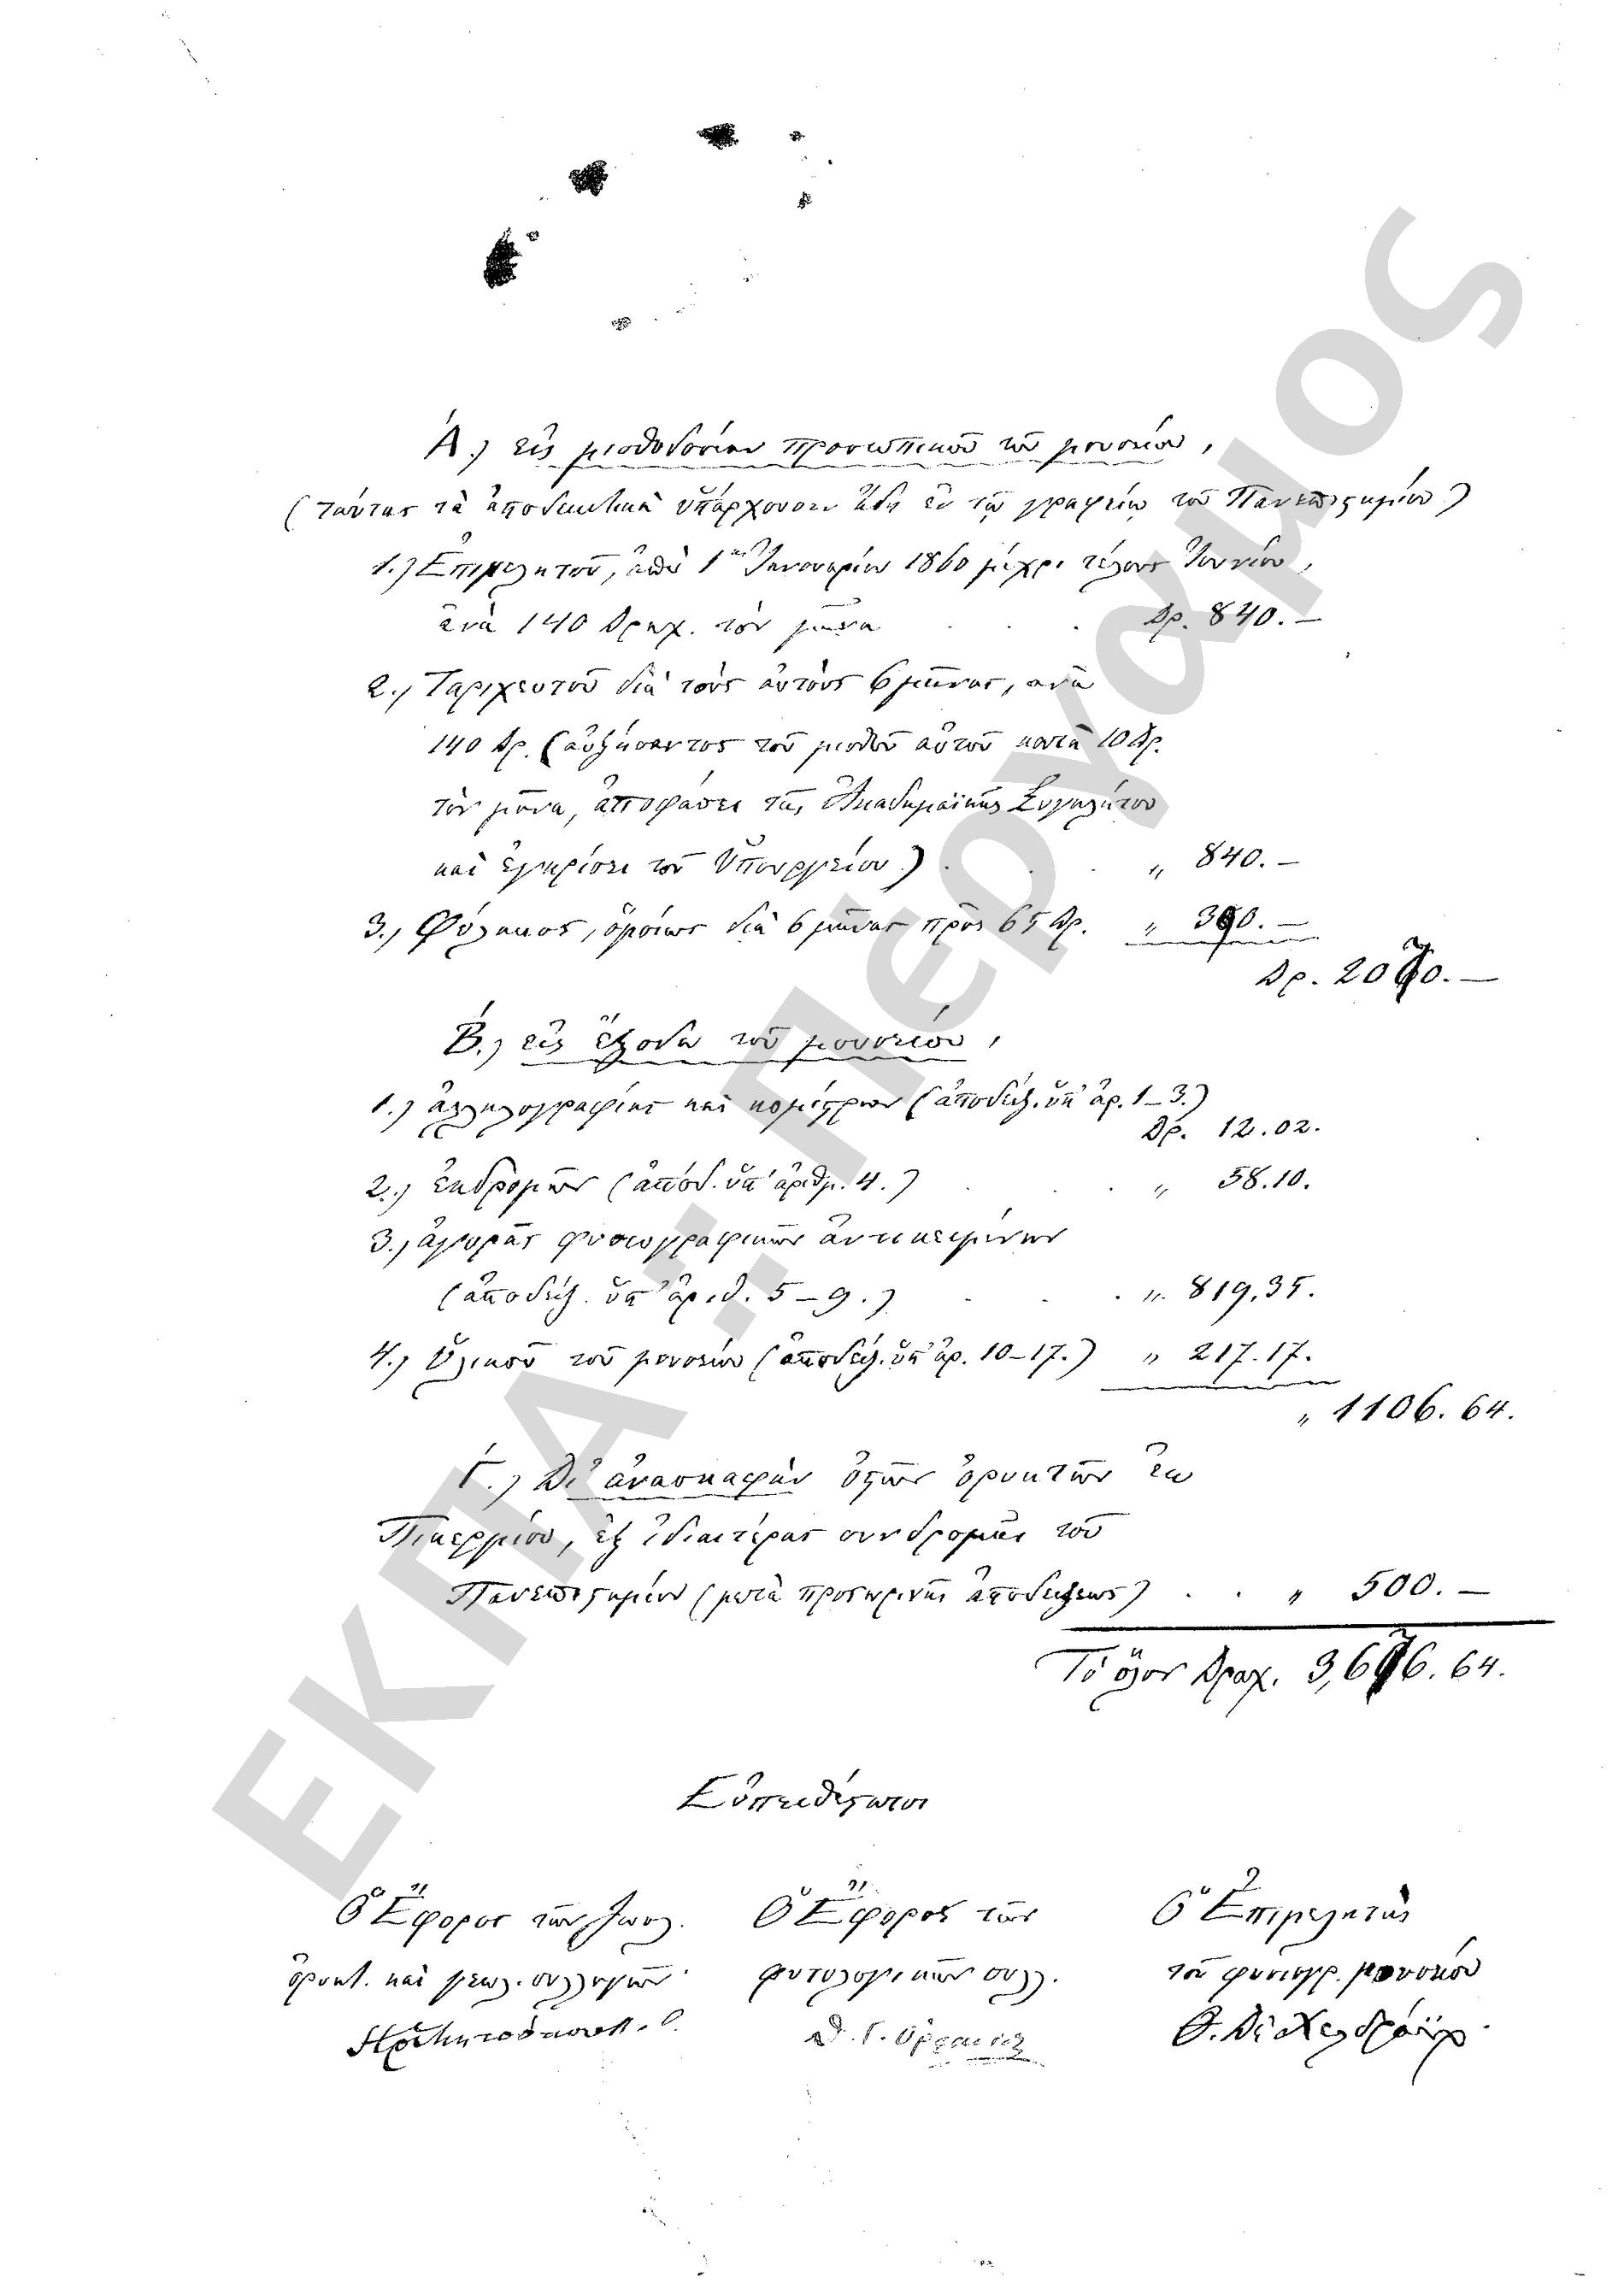 Α.) εἰς μισθοδοσίαν προσωπικοῦ τοῦ μουσείου,
(ταύτης τὰ ἀποδεικτικὰ ὑπάρχουσιν ἤδη ἐν τῷ γραφείῳ τοῦ Πανεπιστημίου)
1.) Ἐπιμελητοῦ, ἀπὸ 1ης Ἰανουαρίου 1860 μέχρι τέλους Ἰουνίου,
ἀνὰ 140 δραχ. τὸν μῆνα . . . Δρ. 840.—
2.) Ταριχευτοῦ διὰ τοὺς αὐτοὺς 6 μῆνας, ἀνὰ
140 δρ. (αὐξήσαντος τοῦ μισθοῦ αὐτοῦ κατὰ 10 δρ.
τὸν μῆνα, ἀποφάσει τῆς Ἀκαδημαϊκῆς Συγκλήτου
καὶ ἐγκρίσει τοῦ Ὑπουργείου) . . . „ 840.—
3.) Φύλακος, ὁμοίως διὰ 6 μῆνας πρὸς 65 δρ. „ 390.—
Δρ. 2070.—
Β.) εἰς ἔξοδα τοῦ μουσείου,
1.) ἀλληλογραφίας καὶ κομίστρων (ἀποδείξ. ὑπ' ἀρ. 1–3.)
Δρ. 12.02.
2.) ἐκδρομῶν (ἀποδ. ὑπ' ἀριθμ. 4.) . . . „ 58.10.
3.) ἀγορᾶς φυσιογραφικῶν ἀντικειμένων
(ἀποδείξ. ὑπ' ἀριθ. 5–9.) . . . „ 819,35.
4.) ὑλικοῦ τοῦ μουσείου (ἀποδείξ. ὑπ' ἀρ. 10–17.) „ 217.17.
„ 1106.64.
Γ.) Δι' ἀνασκαφὴν ὀστῶν ὀρυκτῶν ἐν
Πικερμίου, ἐξ ἰδιαιτέρας συνδρομῆς τοῦ
Πανεπιστημίου (μετὰ προσωρινῆς ἀποδείξεως) . . „ 500.—
Τὸ ὅλον Δραχ. 3,676.64.
Εὐπειθέστατοι
Ὁ Ἔφορος τῶν ζωολ. Ὁ Ἔφορος τῶν Ὁ Ἐπιμελητὴς
ὀρυκτ. καὶ γεωλ. συλλογῶν φυτολογικῶν συλλ. τοῦ φυσιογρ. μουσείου
Θ. Γ. Ὀρφανίδης Θ. δὲ Χελδράϊχ
ΕΚΠΑ: Πέργαμος